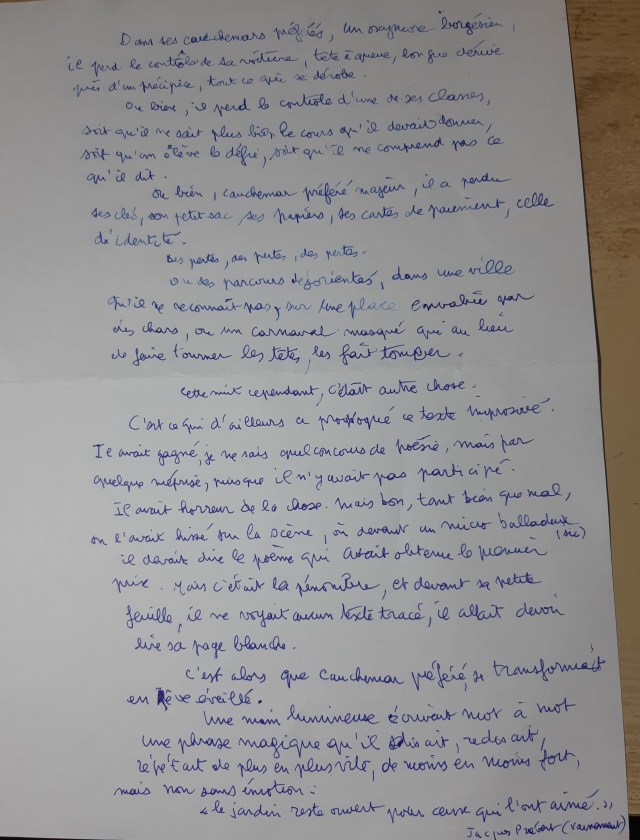 Dans ses cauchemars préférés, un oxymore borgésien,
il perd le contrôle de sa voiture, tête à queue, longue dérive
près d'un précipice, tout ce qui se dérobe.
Ou bien, il perd le contrôle d'une de ses classes,
soit qu'il ne sait plus bien le cours qu'il devait donner,
soit qu'un élève le défie, soit qu'il ne comprend pas ce
qu'il dit.
Ou bien, cauchemar préféré majeur, il a perdu
ses clés, son petit sac, ses papiers, ses cartes de paiement, celle
d'identité.
Des pertes, des pertes, des pertes.
Ou des parcours désorientés, dans une ville
qu'il ne reconnaît pas, sur une place envahie par
des chars, ou un carnaval masqué qui au lieu
de faire tourner les têtes, les fait tomber.
Cette nuit cependant, c'était autre chose.
C'est ce qui d'ailleurs a provoqué ce texte improvisé.
Il avait gagné, je ne sais quel concours de poésie, mais par
quelque méprise, puisque il n'y avait pas participé.
Il avait horreur de la chose. Mais bon, tant bien que mal,
on l'avait hissé sur la scène, où devant un micro balladeux
(sic)
il devait dire le poème qui avait obtenu le premier
prix. Mais c'était la pénombre, et devant sa petite
feuille, il ne voyait aucun texte tracé, il allait devoir
lire sa page blanche.
C'est alors que cauchemar préféré, se transformait
en rêve éveillé.
Une main lumineuse écrivait mot à mot
une phrase magique qu'il disait, redisait,
répétait de plus en plus vite, de moins en moins fort,
mais non sans émotion :
« le jardin reste ouvert pour ceux qui l'ont aimé. »
Jacques Prévert (vraiment)